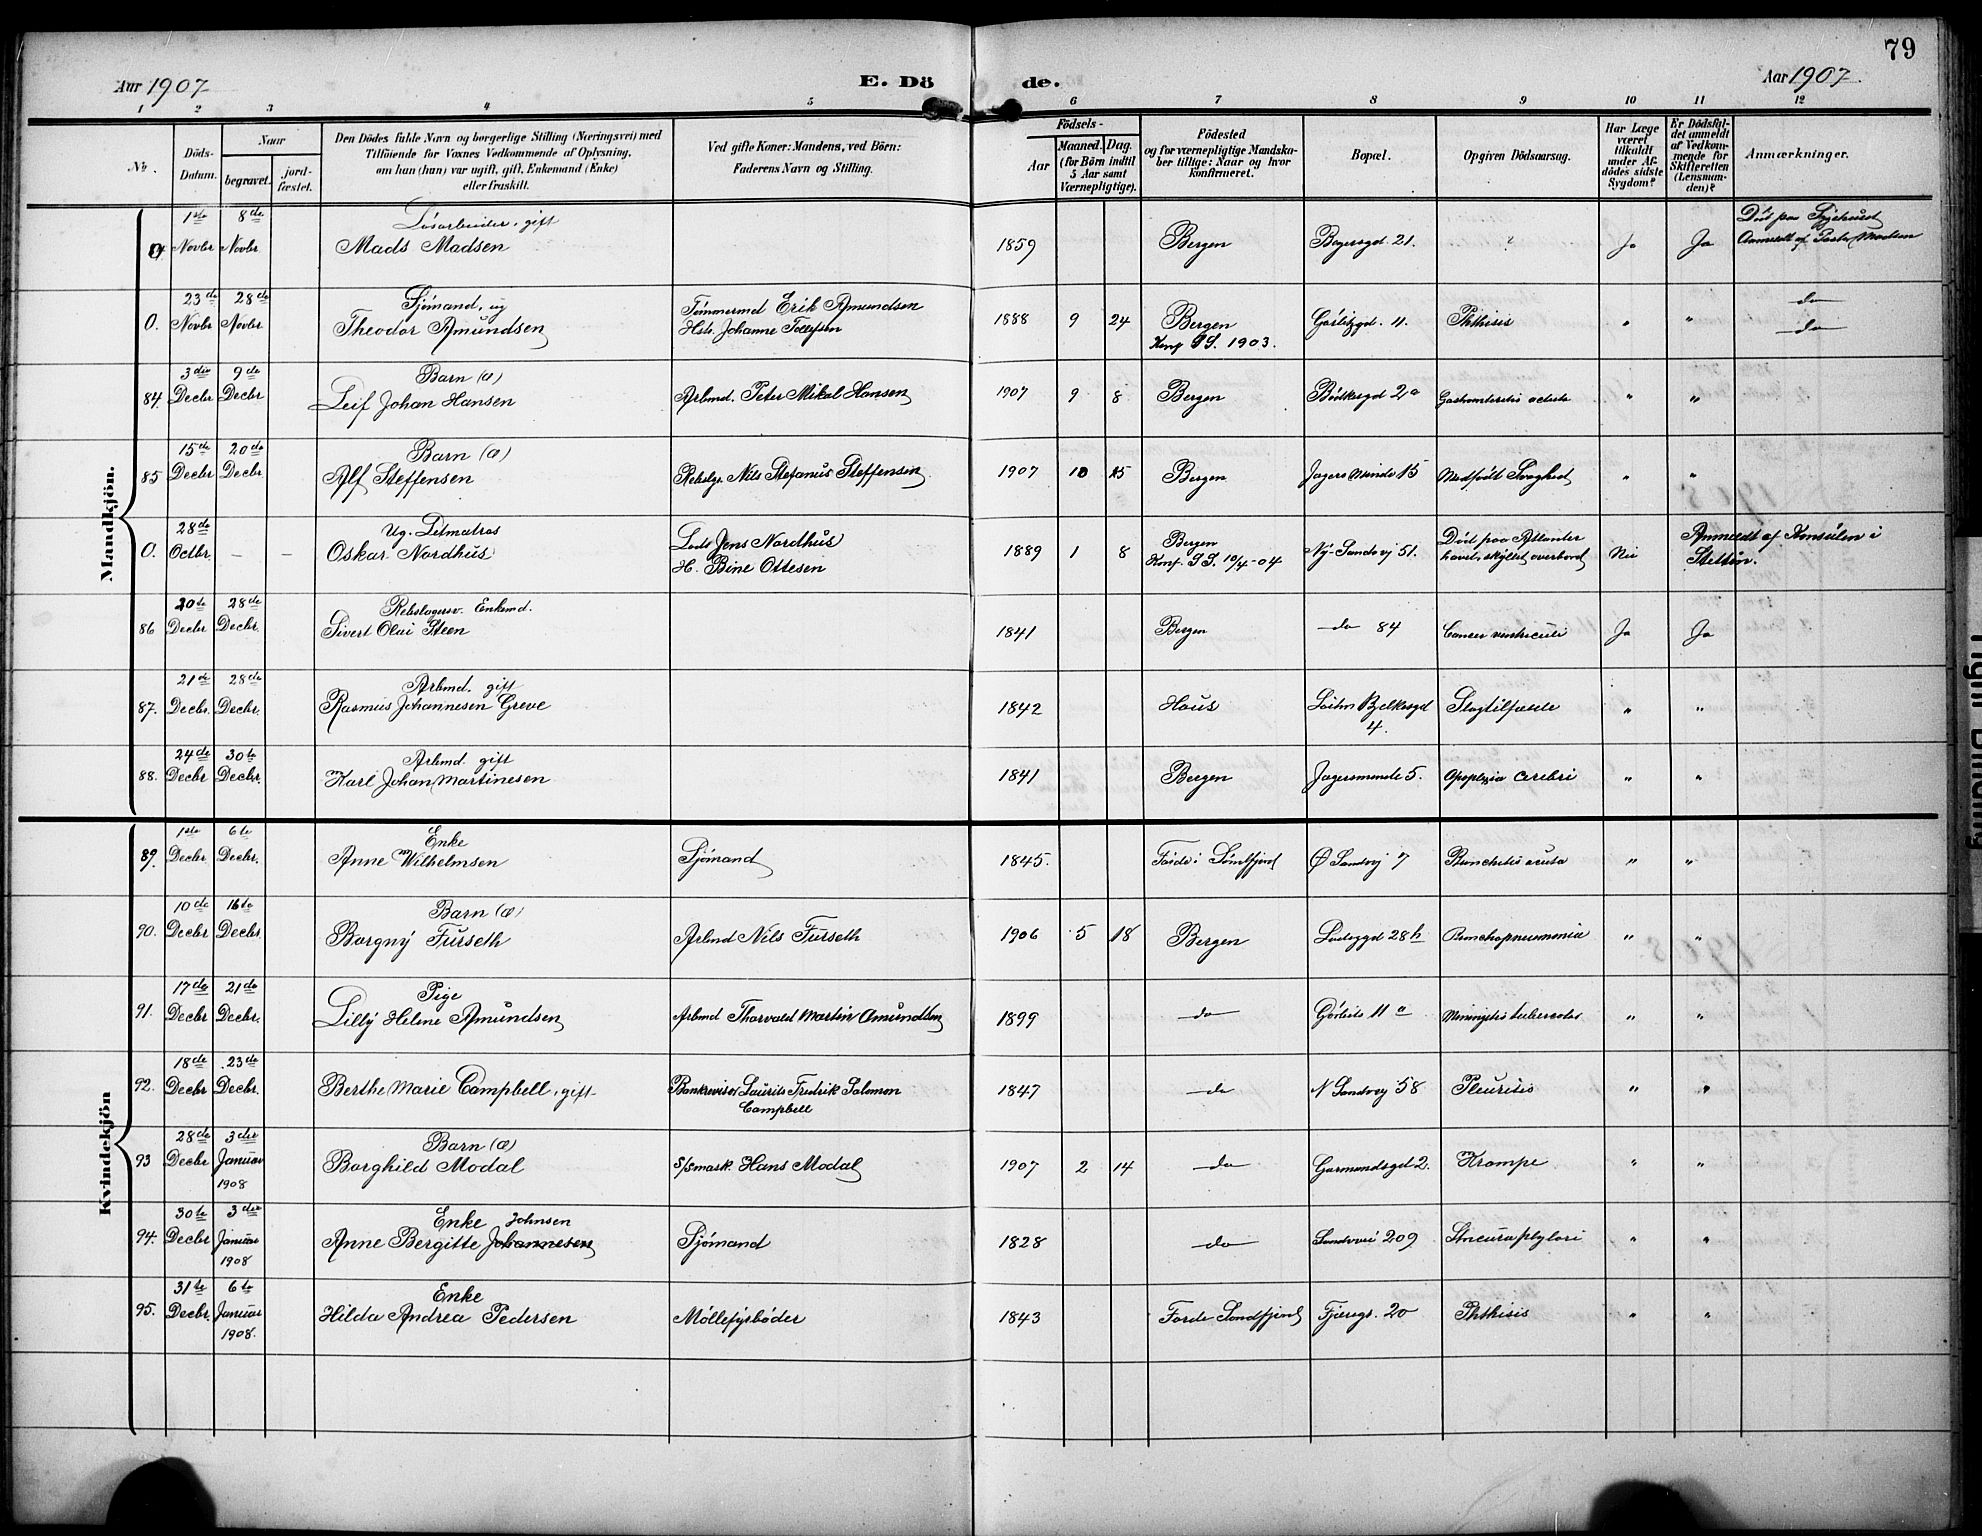 79
Aar 1907
E. Dö
de.
Aar 1907.
1 2 3 4 5 6 7 8 9 10 11 12
No.
Döds-
Datum.
Naar
begravet.
jord-
fæstet.
Den Dödes fulde Navn og borgerlige Stilling (Næringsvei) med
Tilföiende for Voxnes Vedkommende af Oplysning,
om han (hun) var ugift, gift, Enkemand (Enke)
eller fraskilt.
Ved gifte Koner: Mandens, ved Börn:
Faderens Navn og Stilling.
Födsels-
Aar
Maaned. Dag.
(for Börn indtil
5 Aar samt
Værnepligtige).
Födested
og for værnepligtige Mandska-
ber tillige: Naar og hvor
konfirmeret.
Bopæl.
Opgiven Dödsaarsag.
Har Læge
været
tilkaldt
under Af-
dödes sidste
Sygdom?
Er Dödsfal-
det anmeldt
af Vedkom-
mende for
Skifteretten
(Lensman-
den)?
Anmærkninger.
Mandkjön.
1ste 8de Løsarbeider, gift Død paa Sygehuset
0. Novbr Novbr Mads Madsen 1859 Bergen 21. " Ja Ja Anmeldt af Pastor Madsen
23de 28de Sjømand, ug Tømmermd Erik Amundsen do
0. Novbr Novbr Theodor Amundsen Hstr. Johanne Tollefsen 1888 9 24 Bergen 11. Phthisis " " do
Konf 1903.
3die 9de Barn (æ)
84. Decbr Decbr Leif Johan Hansen Arbmd. Peter Mikal Hansen 1907 9 8 Bergen 2a " "
15de 20de Barn (æ)
85 Decbr Decbr Alf Steffensen Rebslgr. Nils Stefanus Steffensen 1907 10 15 Bergen Jægersminde 15 Medfødt Svaghed " "
28de Ug. Letmatros Lods Jens Nordhus Bergen Død paa Atlanter Anmeldt af Konsulen i
0. Octbr. – – Oskar Nordhus H. Bine Ottesen 1889 1 8 Konf. 10/4-04 Ny-Sandvj 51. havet, skyllet overbord Nei Stettin.
20de 28de Rebslagersv. Enkemd.
86 Decbr Decbr. Sivert Olai Steen 1841 Bergen do 84 Cancer ventriculi Ja Ja
21de 28de Arbmd. gift
87. Decbr. Decbr. Rasmus Johannesen Greve 1842 Haus Slagtilfælde " "
4.
24de 30te Arbmd. gift
88. Decbr Decbr. Karl Johan Martinesen 1841 Bergen Jægersminde 5. Apoplexia cerebri " "
Kvindekjön
1ste 6te Enke
89. Decbr Decbr. Anne Wilhelmsen Sjømand 1845. Førde i Søndfjord Ø Sandvj 7 Bronchitis acuta " "
10de 16de Barn (æ)
90. Decbr Decbr. Borgny Furseth Arbmd Nils Furseth 1906 5 18 Bergen 28b Bronchopneumonia " "
17de 21de Pige
91. Decbr Decbr. Lilly Helene Amundsen Arbmd Thorvald Martin Amundsen 1899 do 11a " "
18de 23de
92. Decbr Decbr. Berthe Marie Campbell, gift Laurits Fredrik Salomon 1847 do N Sandvj 58 Pleuritis " "
Campbell
28de 3die Barn (æ)
93 Decbr Januar Borghild Modal S/Smask. Hans Modal 1907 2 14 do Garmandsgd 2. Krampe " "
1908
30te 3die Enke Johnsen
94. Decbr Januar Anne Bergitte Johannesen Sjømand 1828 do Sandvei 209 " "
1908
31te 6te Enke
95. Decbr. Januar Hilda Andrea Pedersen Møllefyrbøder 1843 Førde Søndfjord Fjæregr. 20 Phthisis " "
1908.